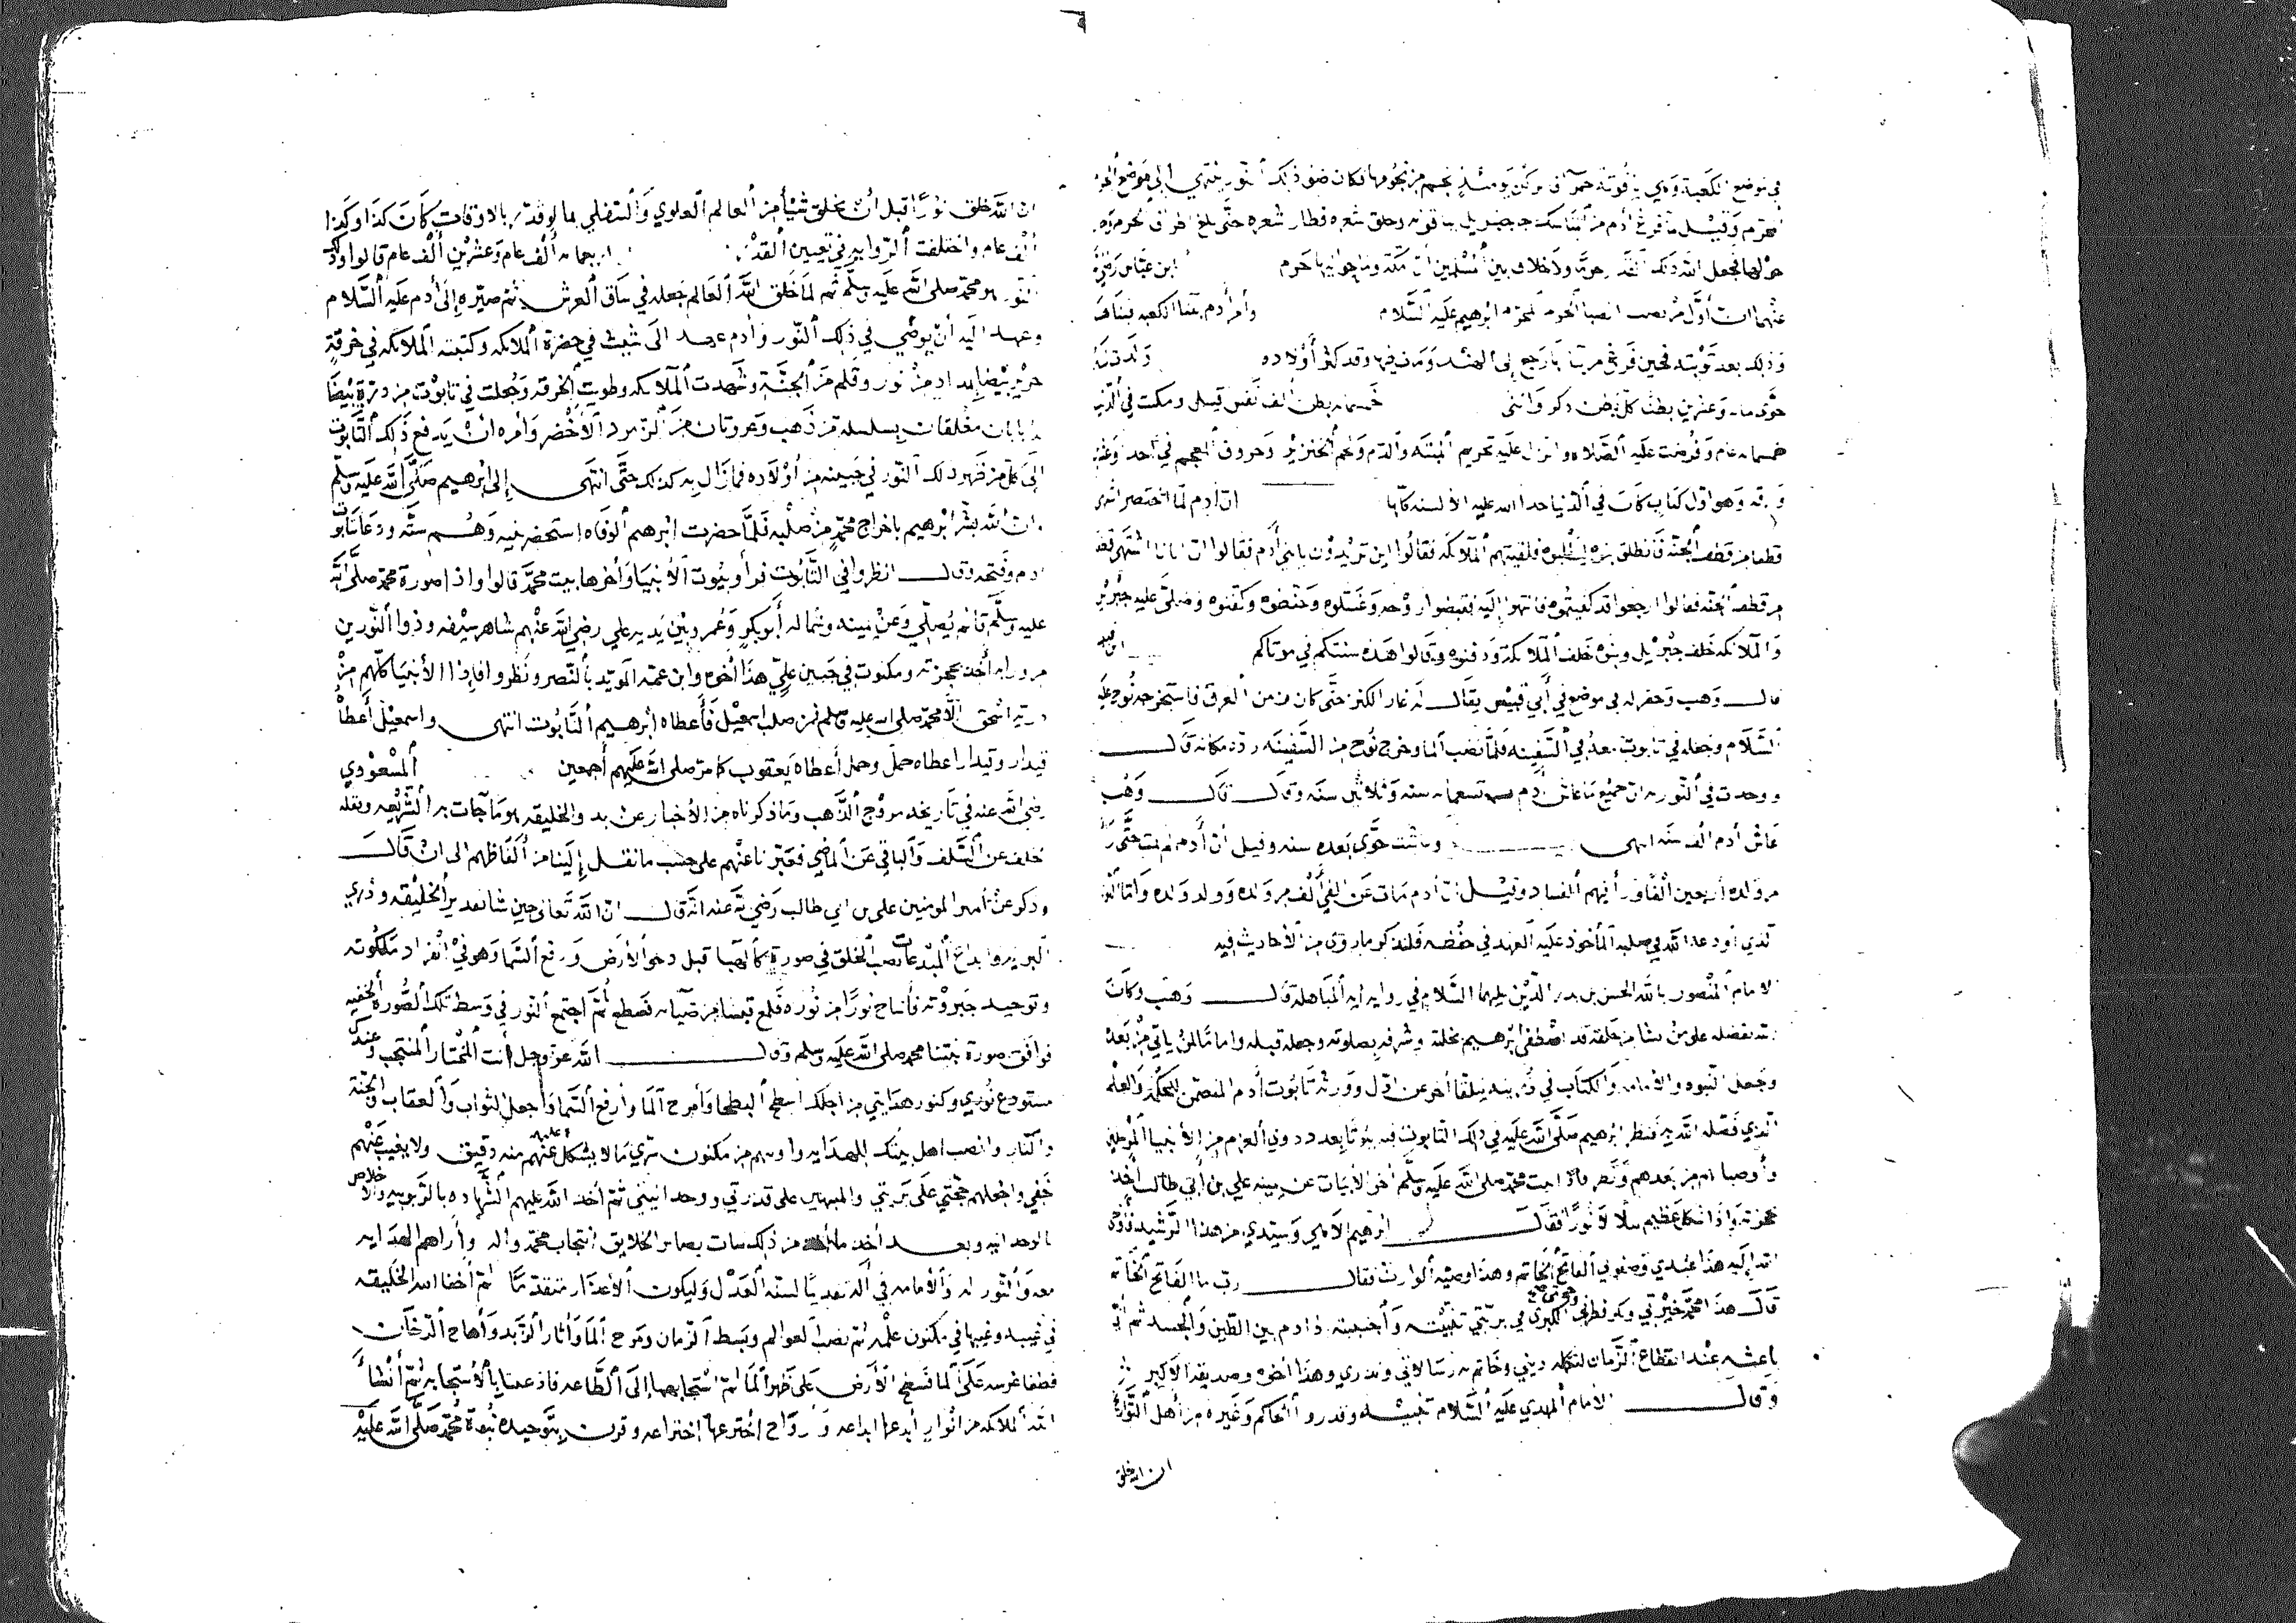 في موضع الكعبة وهي ياقوتة حمرآ من نجومها فكان ضو ذلك النور ينتهي إلى موضع الحرم
المحرم وقيل لما فرغ ادم من المناسك جاه جبريل بياقوته وحلق شعره فطار شعره حتى بلغ اطراف الحرم
حولها فجعل الله ذلك ولا خلاف بين المسلمين ان مكة وما حواليها حرم ابن عباس رضي
عنهما ان أول من نصب انصاب الحرم ابراهيم عليه السلام وأمر آدم ببنا الكعبه فبناها
وذلك بعد توبته فحين فرغ من بنائها رجع إلى الهند ومات فيها وقد كثر أولاده ولدت له
حوى مائة وعشرين بطن كل بطن ذكر وانثى خمسمائه بطن ألف نفس قيل ومكث في الدنيا
خمسمائه عام وفرضت عليه الصلاه وانزل عليه تحريم الميته والدم ولحم الخنزير وحروف المعجم في أحد وعشرين
ورقه وهو أول كتاب كان في الدنيا حدا الله عليه الألسنه كلها ان أدم لما احتضر اشتهى
قطفا من قطف الجنة فانطلق بنوه ليطلبوه فلقيتهم الملائكه فقالوا اين تريدون يا بني أدم فقالوا ان ابانا اشتهى قطفا
من قطف الجنه فقالوا ارجعوا قد كفيتموه فانتهوا إليه فقبضوا روحه وغسلوه وحنطوه وكفنوه وصلى عليه جبريل
والملائكه خلف جبريل وبنوه خلف الملائكة ودفنوه وقالوا هذه سنتكم في موتاكم
قال وهب وحفر له في موضع في أبي قبيس يقال له غار الكنز حتى كان زمن الغرق فاستخرجه نوح عليه
السلام وجعله في تابوت معه في السفينه فلما نضب الما وخرج نوح من السفينه رده مكانه قال
ووجدت في التوريه ان جميع ما عاش أدم تسعمائه سنه وثلاثين سنه وقال قال وهب
عاش أدم الف سنه انتهى وعاشت حوى بعده سنه وقيل أن أدم لم يمت حتى رأى
من ولده أربعين ألفا ورأى فيهم الفساد وقيل ان أدم مات عن ألف من ولده وولد ولده وأما النور
الذي أودعه الله في صلبه المأخوذ عليه العهد في حفظه فلنذكر ما روى من الأحاديث فيه
الامام المنصور بالله الحسن بن بدر الدين عليهما السلام في روايه ايه المباهلة قال وهب وكان
الله بفضله على من يشا من خلقه قد اصطفى ابرهيم بخلته وشرفه بصلوته وجعله قبله واماما لمن يأتي من بعده
وجعل النبوه والامامه والكتاب في ذريته يتلقا أخر عن اول وورثه تابوت أدم المتضمن للحكمة والعلم
الذي فضله الله به فنظر ابرهيم صلى الله عليه في ذلك التابوت فيه بيوتا بعدد ذوي العزم من الأنبيا المرسلين
وأوصيائهم من بعدهم ونظر فاذا بيت محمد صلى الله عليه وسلم أخر الأبيات عن يمينه علي بن أبي طالب أخذ
بحجزته واذا شكل عظيم يتلالا نورا فقال ابرهيم الاهي وسيدي من هذا الرشيد فأوحى
الله إليه هذا عبدي وصفوتي الفاتح الخاتم وهذا وصيه الوارث فقال رب ما الفاتح الخاتم
قال هذا محمد خيرتي وبكر فطرتي وحجتي الكبرى في بريتي نبيته وأجتبيته وادم بين الطين والجسد ثم أني
باعثه عند انقطاع الزمان لتكمله ديني وخاتم به رسالاتي ونذري وهذا أخوه وصديقه الاكبر
وقال الامام المهدي عليه السلام وغيره من أهل التواريخ
ان الله خلق
ان الله خلق نورا قبل أن يخلق شيأ من العالم العلوي والسفلي بما لو قدر بالاوقات كان كذا وكذا
ألف عام واختلفت الروايه في تعيين القدر أربعمائه ألف عام وعشرين ألف عام قالوا وذلك
النور هو محمد صلى الله عليه وسلم ثم لما خلق الله العالم جعله في ساق العرش ثم صيره إلى أدم عليه السلام
وعهد اليه أن يوصي في ذلك النور وأدم عهد الى شيث في حضرة الملائكه وكتبته الملائكه في خرقة
حرير بيضا بمداد من نور وقلم من الجنة وشهدت الملائكه وطويت الخرقه وجعلت في تابوت من درة بيضا
له بابان مغلقان بسلسلة من ذهب وعروتان من الزمرد الأخضر وأمره ان يدفع ذلك التابوت
إلى كل من ظهر ذلك النور في جبينه من أولاده فما زال به كذلك حتى انتهى إلى ابرهيم صلى الله عليه وسلم
وان الله بشر ابرهيم باخراج محمد من صلبه فلما حضرت ابرهيم الوفاه استحضر بنيه وهم سته ودعا بتابوت
أدم وفتحه وقال انظروا في التابوت فرأوا بيوت الأنبيا وأخرها بيت محمد قالوا واذا صورة محمد صلى الله
عليه وسلم قائم يصلي وعن يمينه وشماله أبو بكر وعمر وبين يديه علي رضي الله عنهم شاهر سيفه وذوا النورين
من ورائه أخذ بحجزته ومكتوب في جبين علي هذا أخوه وابن عمه المويد بالنصر ونظروا فإذا الأنبيا كلهم من
ذرية اسحق الا محمد صلى الله عليه وسلم فمن صلب اسمعيل فأعطاه ابرهيم التابوت انتهى واسمعيل أعطاه
قيدار وقيدار اعطاه حمل وحمل أعطاه يعقوب كما مر صلى الله عليهم أجمعين المسعودي
رضي الله عنه في تاريخه مروج الذهب وما ذكرناه من الأخبار عن بدو الخليقه هو ما جات به الشريعه ونقله
خلف عن السلف والباقي عن الماضي فعبرنا عنهم على حسب ما نقل إلينا من ألفاظهم الى ان قال
وذكر عن أمير المومنين علي بن ابي طالب رضي الله عنه انه قال ان الله تعالى حين شا تقدير الخليقه وذري
البريه وابداع المبدعات نصب الخلق في صورة كالهبا قبل دحو الأرض ورفع السما وهو في انفراد ملكوته
وتوحيد جبروته فأساح نورا من نوره فلمع قبسا من ضيائه فسطع ثم اجتمع النور في وسط تلك الصورة الخفيه
فوافق صورة نبينا محمد صلى الله عليه وسلم وقال الله عز وجل أنت المختار المنتجب وعندك
مستودع نوري وكنوز هدايتي من اجلك اسطح البطحا وأمرج الما وأرفع السما واجعل الثواب والعقاب والجنة
والنار وانصب اهل بيتك للهدايه واوتيهم من مكنون سري ما لا يشكل عليهم منه دقيق ولا يغيب عنهم
خفي واجعلهم حجتي على بريتي والمنبهين على قدرتي ووحدانيتي ثم أخذ الله عليهم الشهاده بالربوبيه والاخلاص
بالوحدانيه وبعد أخذ ما أخذ من ذلك شاب بصائر الخلايق انتجاب محمد واله وأراهم الهدايه
معه والنور له والامامه في أله تقديما لسنه العدل وليكون الأعذار متقدما ثم أخفا الله الخليقه
في غيبه وغيبها في مكنون علمه ثم نصب العوالم وبسط الزمان ومرج الما وأثار الزبد وأهاج الدخان
فطفا عرشه على الما فسطح الأرض على ظهر الما ثم استجابهما إلى الطاعه فاذعنتا بالأستجابه ثم أنشأ
الله الملائكه من أنوار أبدعها ابداعه وأرواح اخترعها اختراعه وقرن بتوحيده نبوة محمد صلى الله عليه